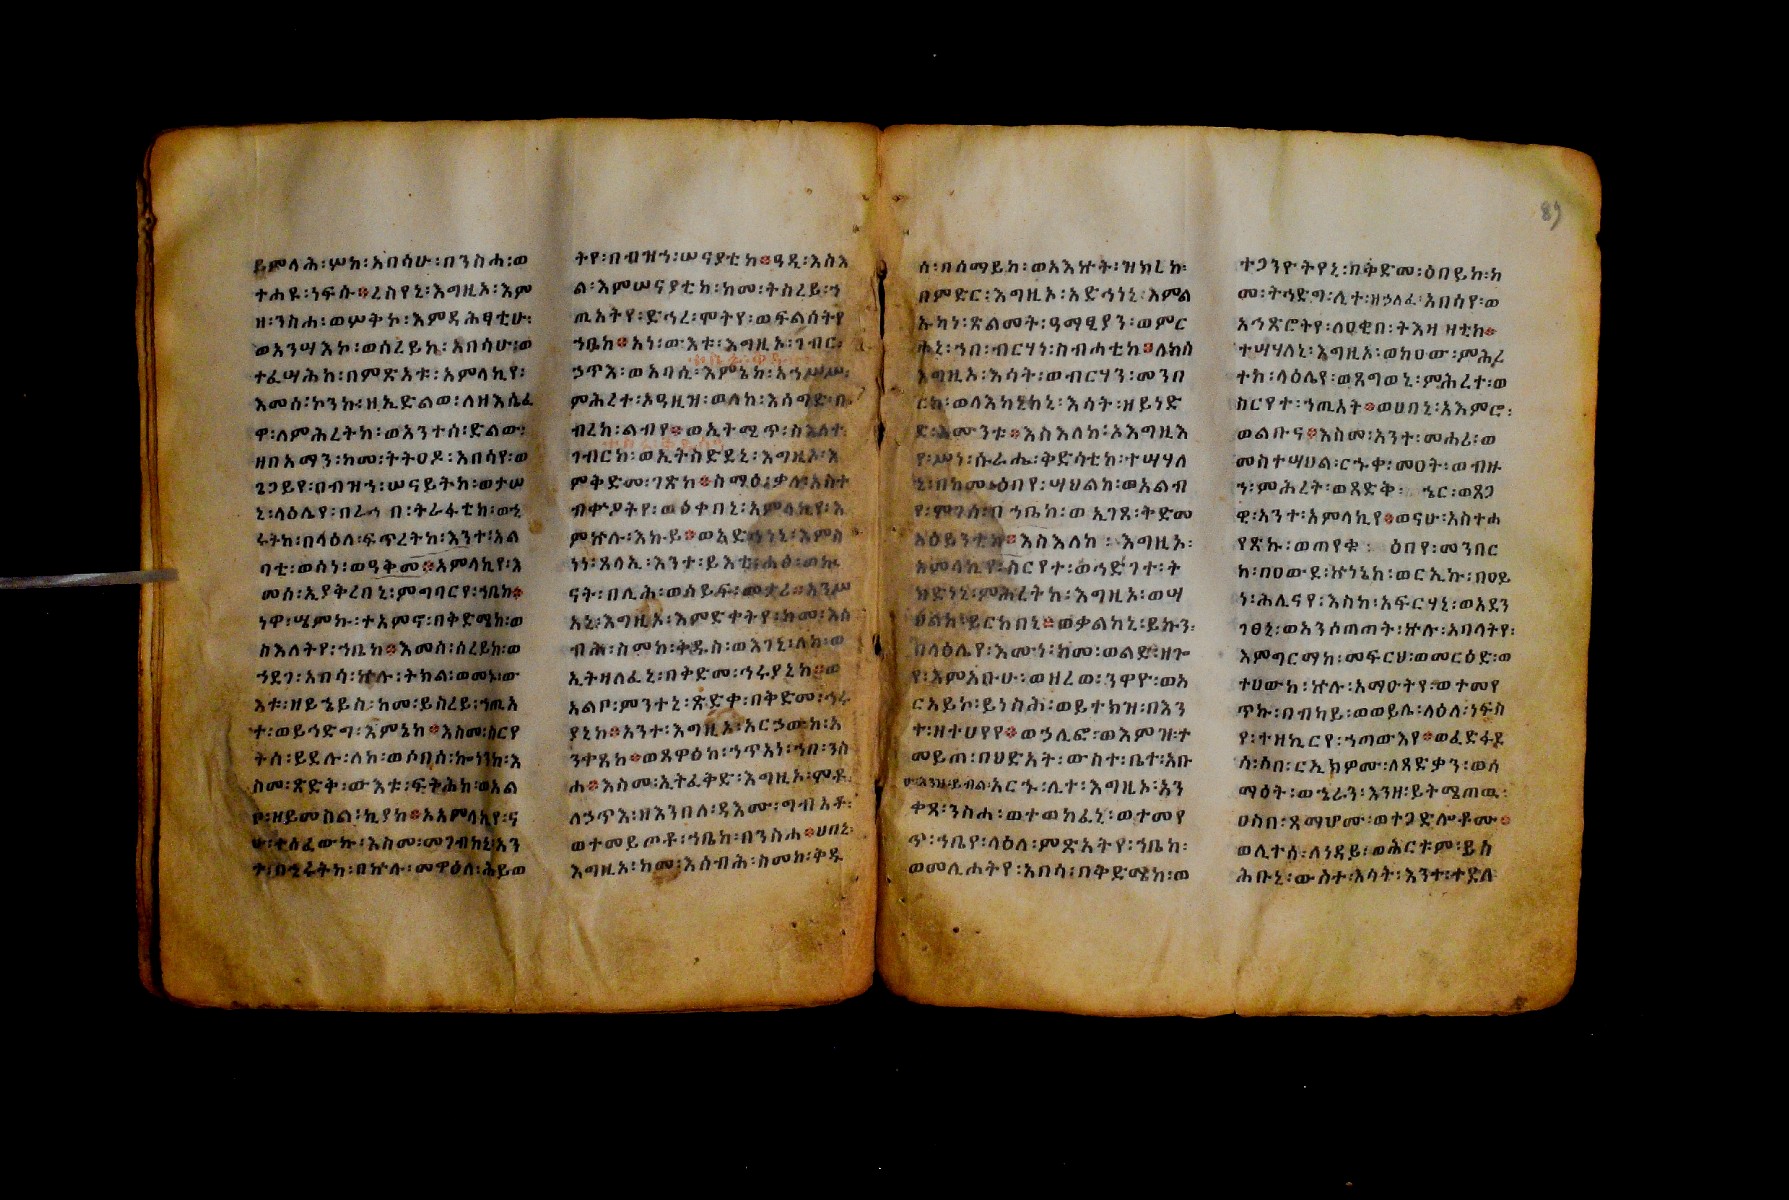 ይምላሕ፡ሦክ፡አበሳሁ፡በንስሓ፡ወ
ተሐዪ፡ነፍሱ።ረስየኒ፡እግዚኦ፡እም
ዘ፡ንስሐ፡ወሦቅኮ፡እምዳሕፃቲሁ፡
ወአንሣእኮ፡ወሰረይከ፡አበሳሁ፡ወ
ተፈሣሕከ፡በምጽአቱ፡አምላኪየ፡
እመሰ፡ኮንኩ፡ዘኢይልወ፡ለዘእሴፈ
ዋ፡ለምሕረትከ፡ወአንተሰ፡ድልው፡
ዘበአማን፡ከመ፡ትትዐዶ፡አበሳየ፡ወ
ጌጋይየ፡በብዝኀ፡ሠናይትከ፡ወታሠ
ሩትከ፡በላዕለ፡ፍጥረትከ፡እንተ፡አል
ባቲ፡ወሰነ፡ወዓቅመ።አምላኪየ፡እ
መሰ፡ኢያቅረበኒ፡ምግባርየ፡ኀቤከ።
ነዋ፡ሤምኩ፡ተአምኖ፡በቅድሜከ፡ወ
ስእለትየ፡ኀቤከ።እመሰ፡ሰረይከ፡ወ
ኀደገ፡አበሳ፡ኵሉ፡ትክል፡ወመኑ፡ው
እቱ፡ዘይኄይስ፡ከመ፡ይስረይ፡ኀጢአ
ተ፡ወይኀድግ፡እምኔከ።እስመ፡ስርየ
ስመ፡ጽድቅ፡ውእቱ፡ፍትሕከ፡ወአል
ቦ፡ዘይመስል፡ኪያከ።አአምላኪየ፡ናሁ፡ተሰፈውኩ፡እስመ፡መገብከኒ፡አን
ተ፡በኂሩትከ፡በኵሉ፡መዋዕለ፡ሕይወ
ትየ፡በብዝኀ፡ሠናያቲከ።ዓዲ፡እስእ
ል፡እምሠናያቲከ፡ከመ፡ትስረይ፡ኀ
ጢአትየ፡ድኅረ፡ሞትየ፡ወፍልሰትየ
ኀቤከ።አነ፡ውእቱ፡እግዚኦ፡ገብር፡
ኃጥእ፡ወአባሲ፡እምኔከ፡አኀሥሥ፡
ምሕረተ፡ኦዓዚዝ፡ወለከ፡እሰግድ፡በ
ብረከ፡ልብየ።ወኢትሚጥ፡ስእለተ፡
ገብርከ፡ወኢትስድደኒ፡እግዚኦ፡እ
ምቅድመ፡ገጽከ።ስማዕ፡ቃለ፡አስተ
ብቍዖትየ፡ወዕቀበኒ፡አምላኪየ፡እ
ምኵሉ፡እኩይ።ወአድኅነኒ፡እምስ
ነነ፡ጸላኢ፡እንተ፡ይእቲ፡ሐፅ፡ወኩ
ናት፡በሊሕ፡ወሰይፍ፡መታሪ።አንሥ
አኒ፡እግዚኦ፡እምድቀትየ፡ከመ፡እሰ
ብሕ፡ስምከ፡ቅዱስ፡ወእገኒ፡ለከ፡ወ
ኢትዛለፈኒ፡በቅድመ፡ኅሩያኒከ።ወ
አልቦ፡ምንተኒ፡ጽድቀ፡በቅድመ፡ኅሩ
ያኒከ።አንተ፡እግዚኦ፡አርኃውከ፡አ
ንተጸከ።ወጸዋዕከ፡ኀጥአነ፡ኀበ፡ንስ
ሐ።እስመ፡ኢትፈቅድ፡እግዚኦ፡ሞቶ፡
ለኃጥእ፡ዘእንበለ፡ዳእሙ፡ግብአቶ፡
ወተመይጦቶ፡ኀቤከ፡በንስሐ።ሀበኒ፡
እግዚኦ፡ከመ፡እሰብሕ፡ስመከ፡ቅዱ
ሰ፡በሰማይከ፡ወአእኵት፡ዝክረከ፡
በምድር፡እግዚኦ፡አድኅነኒ፡እምል
ኡካነ፡ጽልመት፡ዓማፂያን፡ወምር
ሐኒ፡ኀበ፡ብርሃነ፡ስብሓቲከ።ለከሰ
እግዚኦ፡እሳት፡ወብርሃን፡መንበ
ርከ፡ወላእካኒከኒ፡እሳት፡ዘይነድ
ድ፡እሙንቱ።እስእለከ፡ኦእግዚእ
የ፡ሥነ፡ሱራሔ፡ቅድሳቲከ፡ተሣሃለ
ኒ፡በከመ፡ዕበየ፡ሣህልከ፡ወአልብ
የ፡ሞገሰ፡በኀቤከ፡ወኢገጸ፡ቅድመ
አዕይንቲከ።እስእለከ፡እግዚኦ፡
አምላኪየ፡ስርየተ፡ወኅድገተ፡ት
ክድነኒ፡ምሕረትከ፡እግዚኦ፡ወሣ
ህልከ፡ይርከበኒ።ወቃልከኒ፡ይኩን፡
በላዕሌየ፡እሙነ፡ከመ፡ወልድ፡ዘጐ
የ፡እምአቡሁ፡ወዘረወ፡ንዋዮ፡ወእ
ርአይኮ፡ይነስሕ፡ወይተክዝ፡በእን
ተ፡ዘተሀየየ።ወኃሊፎ፡ወእምዝ፡ተ
መይጠ፡በህድአት፡ውስተ፡ቤተ፡አቡ
አርኁ፡ሊተ፡እግዚኦ፡አን
ቀጸ፡ንስሐ፡ወተወከፈኒ፡ወተመየ
ጥ፡ኀቤየ፡ላዕለ፡ምጽአትየ፡ኀቤከ፡
ወመሊሐትየ፡አበሳ፡በቅድሜከ፡ወ
ተጋንዮትየኒ፡በቅድመ፡ዕበይከ፡ከ
መ፡ትኅድግ፡ሊተ፡ዘኃለፈ፡አበሳየ፡ወ
አኅጽሮትየ፡ለዐቂበ፡ትእዛዛቲከ።
ተሣሃለኒ፡እግዚኦ፡ወከዐው፡ምሕረ
ተከ፡ላዕሌየ፡ወጸግወኒ፡ምሕረተ፡ወ
ስርየተ፡ኀጢአት።ወሀበኒ፡አእምሮ፡
ወልቡና።እስመ፡አንተ፡መሐሪ፡ወ
መስተሣህል፡ርኁቀ፡መዐት፡ወብዙ
ኀ፡ምሕረት፡ወጻድቅ፡ኄር፡ወጸጋ
ዊ፡አንተ፡አምላኪየ።ወናሁ፡አስተሐ
የጽኩ፡ወጠየቁ፡ዕበየ፡መንበር
ከ፡በዐውደ፡ኵነኔከ፡ወርኢኩ፡በዐይ
ነ፡ሕሊናየ፡እስከ፡አፍርሃኒ፡ወአደን
ገፀኒ፡ወአንሶጠጠት፡ኵሉ፡አባላትየ፡
እምግርማከ፡መፍርህ፡ወመርዕድ፡ወ
ተሀውከ፡ኵሉ፡አማዑትየ፡ወተመየ
ጥኩ፡በብካይ፡ወወይሌ፡ላዕለ፡ነፍስ
የ፡ተዘኪርየ፡ኀጣውእየ።ወፈድፋደ
ሰ፡ሶበ፡ርኢክዎሙ፡ለጻድቃን፡ወሰ
ማዕት፡ወኄራን፡እንዘ፡ይትሜጠዉ፡
ዐስበ፡ጻማሆሙ፡ወተጋድሎቶሙ።
ወሊተሰ፡ለነዳይ፡ወሕርተም፡ይስ
ሕቡኒ፡ውስተ፡እሳት፡እንተ፡ተደለ